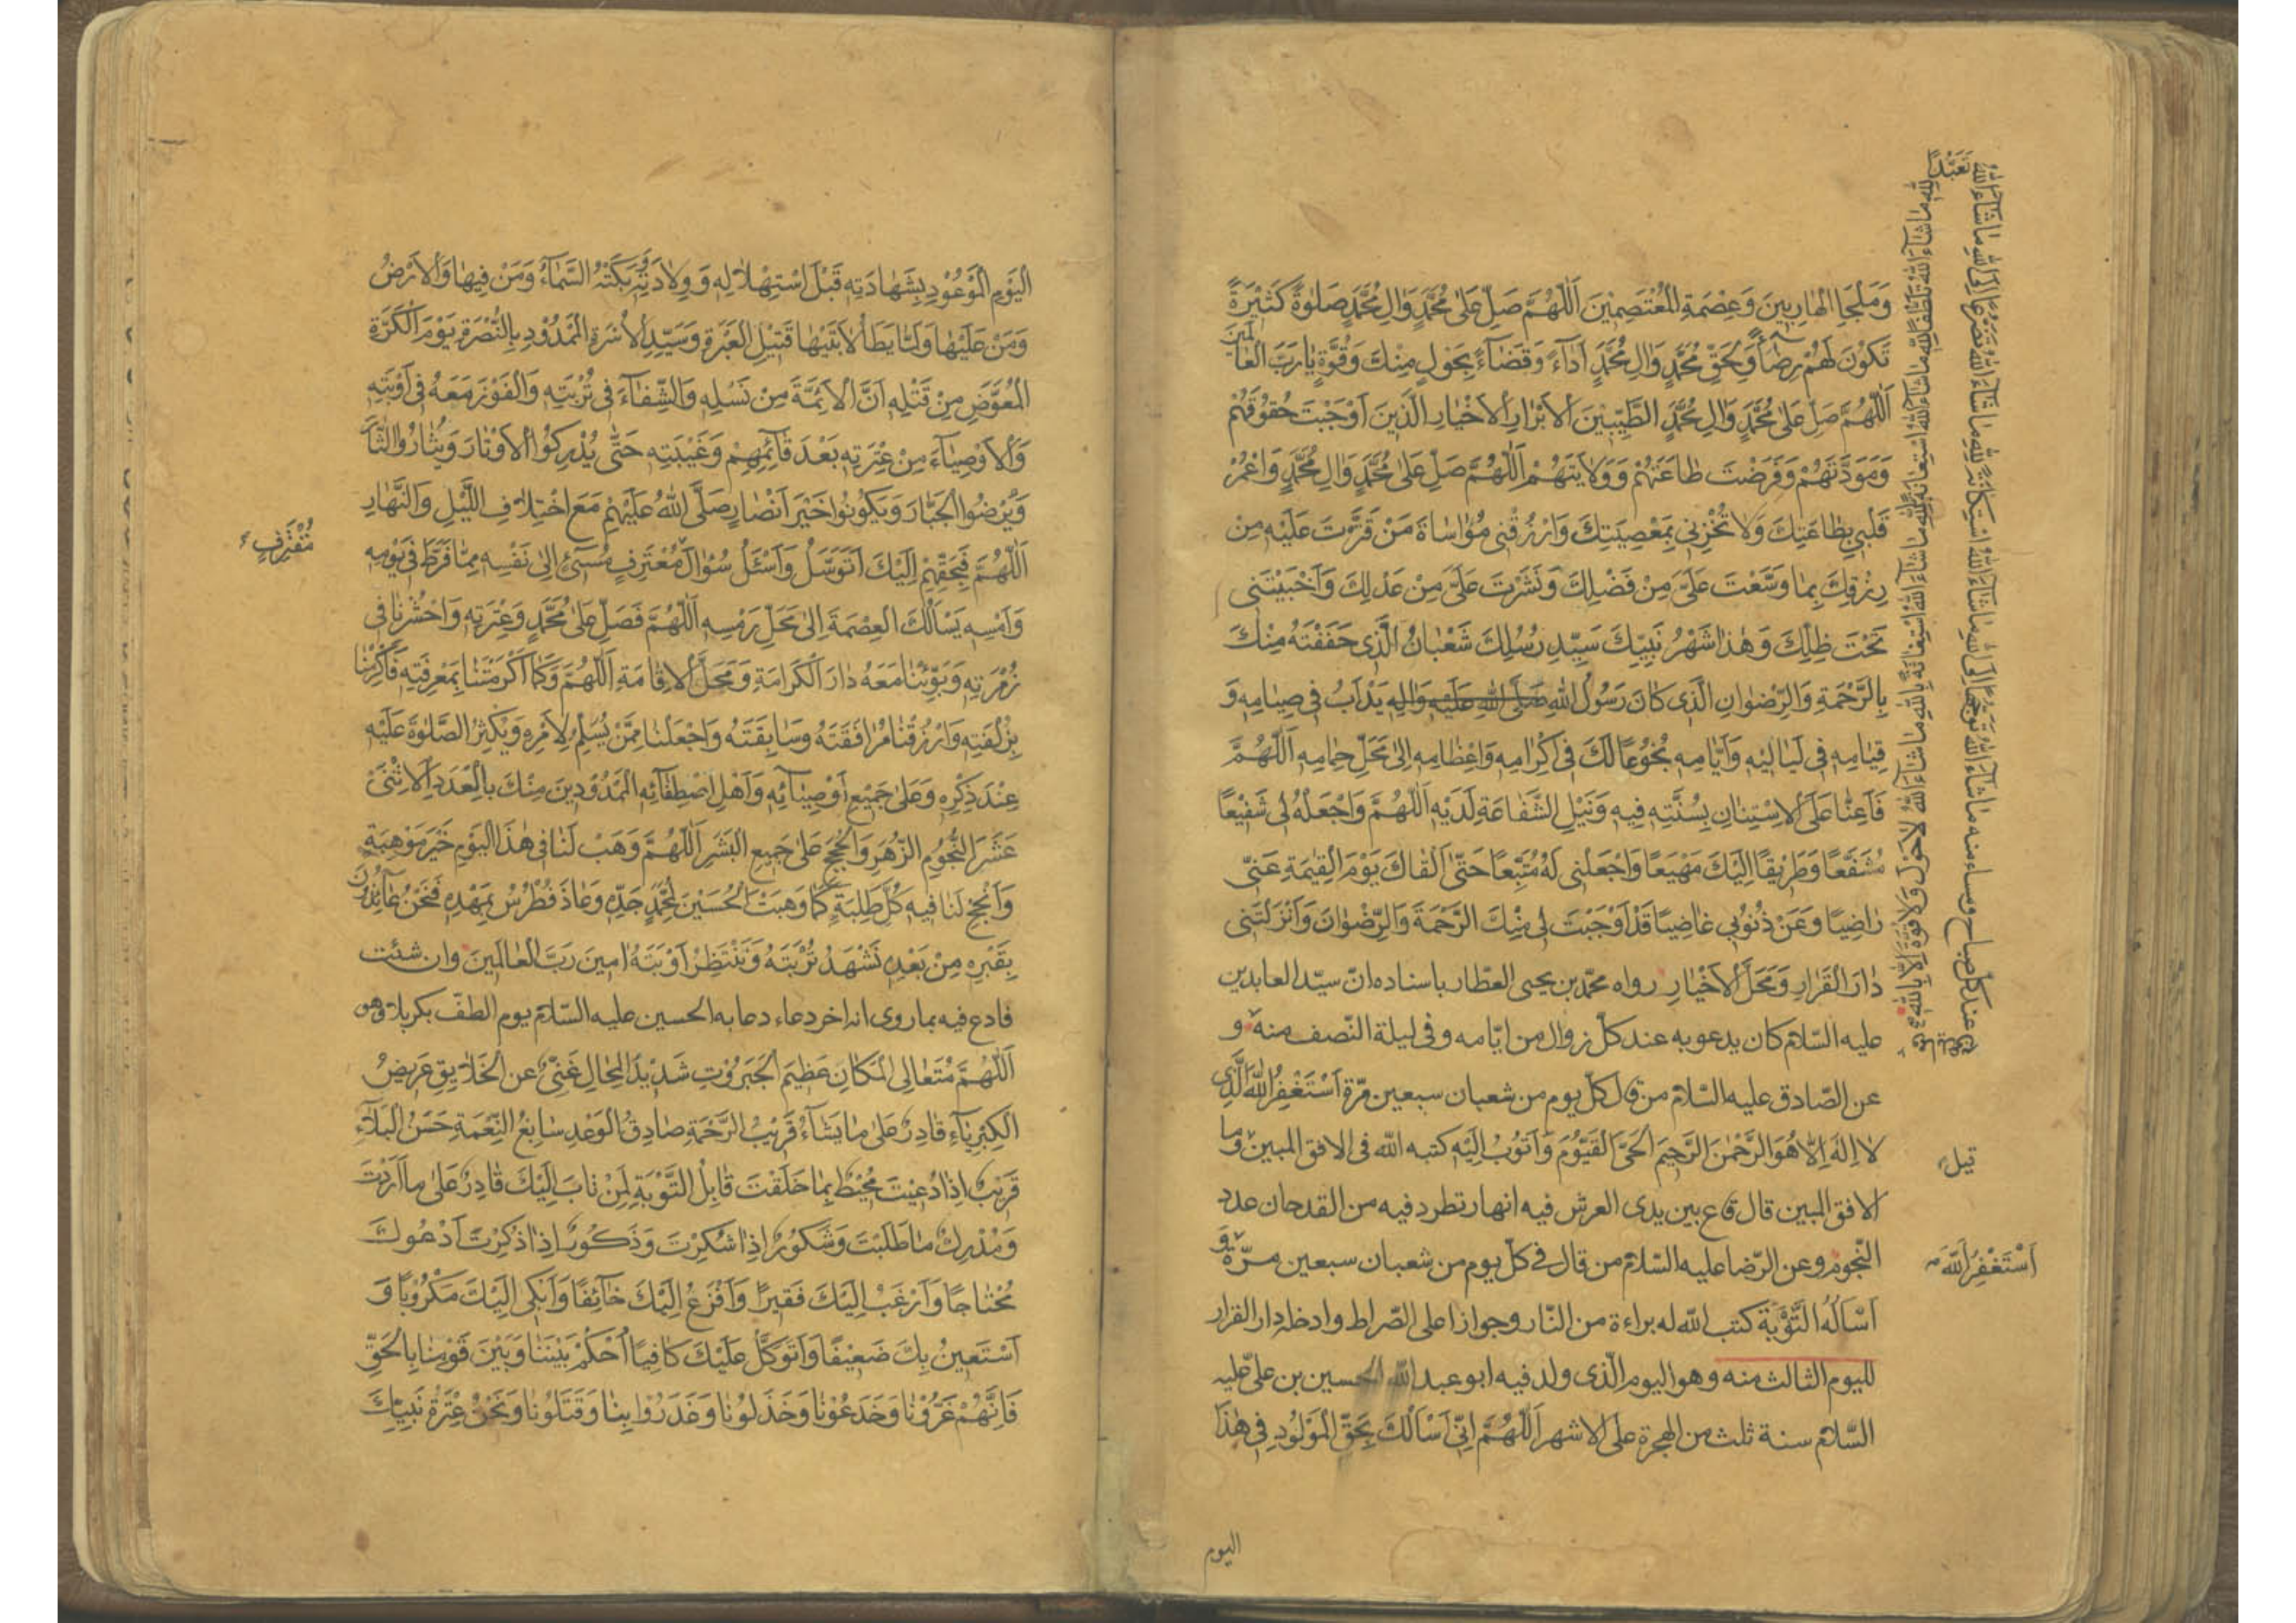 وَمَلْجَأِ الهَارِبِينَ وَعِصْمَةِ المُعْتَصِمِيْنَ اَللّٰهُمَّ صَلِّ عَلىٰ مُحَمَّدٍ وَالِ مُحَمَّدٍ صَلوٰةً كَثِيْرَةً
تَكُونُ لَهُمْ رِضًا وَلِحَقِّ مُحَمَّدٍ وَالِ مُحَمَّدٍ اَدَاءً وَقَضَاءً بِحَوْلٍ مِنْكَ وَقُوَّةٍ يَا رَبَّ العَالَمِيْنَ
اَللّٰهُمَّ صَلِّ عَلىٰ مُحَمَّدٍ وَالِ مُحَمَّدٍ الطَّيِّبِيْنَ الاَبْرَارِ الاَخْيَارِ الَّذِينَ اَوْجَبْتَ حُقُوْقَهُمْ
وَمَوَدَّتَهُمْ وَفَرَضْتَ طَاعَتَهُمْ وَوِلاَيَتَهُمْ اَللّٰهُمَّ صَلِّ عَلىٰ مُحَمَّدٍ وَالِ مُحَمَّدٍ وَاعْمُرْ
قَلْبِي بِطَاعَتِكَ وَلاَ تُخْزِنِي بِمَعْصِيَتِكَ وَارْزُقْنِي مُؤَاسَاةَ مَنْ قَتَّرْتَ عَلَيْهِ مِنْ
رِزْقِكَ بِمَا وَسَّعْتَ عَلَيَّ مِنْ فَضْلِكَ وَنَشَرْتَ عَلَيَّ مِنْ عَدْلِكَ وَاَحْيَيْتَنِي
تَحْتَ ظِلِّكَ وَهٰذَا شَهْرُ نَبِيِّكَ سَيِّدِ رُسُلِكَ شَعْبَانُ الَّذِي حَفَفْتَهُ مِنْكَ
بِالرَّحْمَةِ وَالرِّضْوَانِ الَّذِي كَانَ رَسُوْلُ اللهِ صَلَّى اللهُ عَلَيْهِ وَالِهِ يَدْاَبُ فِي صِيَامِهِ وَ
قِيَامِهِ فِي لَيَالِيْهِ وَاَيَّامِهِ بُخُوْعًا لَكَ فِي اِكْرَامِهِ وَاِعْظَامِهِ اِلىٰ مَحَلِّ حِمَامِهِ اَللّٰهُمَّ
فَاَعِنَّا عَلَى الاِسْتِنَانِ بِسُنَّتِهِ فِيهِ وَنَيْلِ الشَّفَاعَةِ لَدَيْهِ اَللّٰهُمَّ وَاجْعَلْهُ لِي شَفِيْعًا
مُشَفَّعًا وَطَرِيْقًا اِلَيْكَ مَهْيَعًا وَاجْعَلْنِي لَهُ مُتَّبِعًا حَتّٰى اَلْقَاكَ يَوْمَ الْقِيٰمَةِ عَنِّي
رَاضِيًا وَعَنْ ذُنُوْبِي غَاضِيًا قَدْ اَوْجَبْتَ لِي مِنْكَ الرَّحْمَةَ وَالرِّضْوَانَ وَاَنْزَلْتَنِي
دَارَ الْقَرَارِ وَمَحَلَّ الاَخْيَارِ رواه محمّد بن يحيى العطّار باسناده انّ سيّد العابدين
عليه السّلام كان يدعو به عند كلّ زوال من ايّامه وفى ليلة النّصف منه و
عن الصّادق عليه السّلام من قال كلّ يوم من شعبان سبعين مرّة اَسْتَغْفِرُ اللهَ الَّذِي
لاَ اِلٰهَ اِلاَّ هُوَ الرَّحْمٰنَ الرَّحِيْمَ الْحَيَّ الْقَيُّوْمَ وَاَتُوْبُ اِلَيْهِ كتبه الله فى الافق المبين وما
الافق المبين قال قاع بين يدى العرش فيه انهار تطرد فيه من القدحان عدد
النّجوم وعن الرّضا عليه السّلام من قال فى كلّ يوم من شعبان سبعين مرّة و
اَسْاَلُهُ التَّوْبَةَ كتب الله له براءة من النّار وجوازا على الصّراط وادخله دار القرار
لليوم الثالث منه وهو اليوم الّذى ولد فيه ابو عبد الله الحسين بن علىّ عليه
السّلام سنة ثلث من الهجرة على الاشهر اَللّٰهُمَّ اِنِّي اَسْاَلُكَ بِحَقِّ الْمَوْلُوْدِ فِي هٰذَا
قيل
اَسْتَغْفِرُ اللهَ
اليوم
اليَوْمِ الْمَوْعُوْدِ بِشَهَادَتِهِ قَبْلَ اسْتِهْلاَلِهِ وَوِلاَدَتِهِ بَكَتْهُ السَّمَاءُ وَمَنْ فِيهَا وَالاَرْضُ
وَمَنْ عَلَيْهَا وَلَمَّا يَطَأْ لاَبَتَيْهَا قَتِيْلِ العَبْرَةِ وَسَيِّدِ الاُسْرَةِ الْمَمْدُوْدِ بِالنُّصْرَةِ يَوْمَ الْكَرَّةِ
الْمُعَوَّضِ مِنْ قَتْلِهِ اَنَّ الاَئِمَّةَ مِنْ نَسْلِهِ وَالشِّفَاءَ فِي تُرْبَتِهِ وَالْفَوْزَ مَعَهُ فِي اَوْبَتِهِ
وَالاَوْصِيَاءَ مِنْ عِتْرَتِهِ بَعْدَ قَائِمِهِمْ وَغَيْبَتِهِ حَتّٰى يُدْرِكُوا الاَوْتَارَ وَيَثْاَرُوا الثَّارَ
وَيُرْضُوا الْجَبَّارَ وَيَكُوْنُوا خَيْرَ اَنْصَارٍ صَلَّى اللهُ عَلَيْهِمْ مَعَ اخْتِلاَفِ اللَّيْلِ وَالنَّهَارِ
اَللّٰهُمَّ فَبِحَقِّهِمْ اِلَيْكَ اَتَوَسَّلُ وَاَسْئَلُ سُؤَالَ مُعْتَرِفٍ مُسِيْئٍ اِلىٰ نَفْسِهِ مِمَّا فَرَّطَ فِي يَوْمِهِ
وَاَمْسِهِ يَسْاَلُكَ الْعِصْمَةَ اِلىٰ مَحَلِّ رَمْسِهِ اَللّٰهُمَّ فَصَلِّ عَلىٰ مُحَمَّدٍ وَعِتْرَتِهِ وَاحْشُرْنَا فِي
زُمْرَتِهِ وَبَوِّئْنَا مَعَهُ دَارَ الْكَرَامَةِ وَمَحَلَّ الاِقَامَةِ اَللّٰهُمَّ وَكَمَا اَكْرَمْتَنَا بِمَعْرِفَتِهِ فَاَكْرِمْنَا
بِزُلْفَتِهِ وَارْزُقْنَا مُرَافَقَتَهُ وَسَابِقَتَهُ وَاجْعَلْنَا مِمَّنْ يُسَلِّمُ لاَمْرِهِ وَيُكْثِرُ الصَّلوٰةَ عَلَيْهِ
عِنْدَ ذِكْرِهِ وَعَلىٰ جَمِيْعِ اَوْصِيَائِهِ وَاَهْلِ اصْطِفَائِهِ الْمَمْدُوْدِيْنَ مِنْكَ بِالْعَدَدِ الاِثْنَيْ
عَشَرَ النُّجُوْمِ الزُّهَرِ وَالْحُجَجِ عَلىٰ جَمِيعِ الْبَشَرِ اَللّٰهُمَّ وَهَبْ لَنَا فِي هٰذَا الْيَوْمِ خَيْرَ مَوْهِبَةٍ
وَاَنْجِحْ لَنَا فِيهِ كُلَّ طَلِبَةٍ كَمَا وَهَبْتَ الْحُسَيْنَ لِمُحَمَّدٍ جَدِّهِ وَعَاذَ فُطْرُسُ بِمَهْدِهِ فَنَحْنُ عَائِذُوْنَ
بِقَبْرِهِ مِنْ بَعْدِهِ نَشْهَدُ تُرْبَتَهُ وَنَنْتَظِرُ اَوْبَتَهُ امِينَ رَبَّ الْعَالَمِيْنَ وان شئت
فادع فيه بما روى انه اخر دعاء دعا به الحسين عليه السّلام يوم الطفّ بكربلا وهو
اَللّٰهُمَّ مُتَعَالِى الْمَكَانِ عَظِيْمَ الْجَبَرُوْتِ شَدِيْدَ الْمِحَالِ غَنِيٌّ عَنِ الْخَلاَيِقِ عَرِيضُ
الْكِبْرِيَاءِ قَادِرٌ عَلىٰ مَا يَشَاءُ قَرِيْبُ الرَّحْمَةِ صَادِقُ الْوَعْدِ سَابِغُ النِّعْمَةِ حَسَنُ الْبَلاَءِ
قَرِيْبٌ اِذَا دُعِيْتَ مُحِيْطٌ بِمَا خَلَقْتَ قَابِلُ التَّوْبَةِ لِمَنْ تَابَ اِلَيْكَ قَادِرٌ عَلىٰ مَا اَرَدْتَ
وَمُدْرِكٌ مَا طَلَبْتَ وَشَكُوْرٌ اِذَا شُكِرْتَ وَذَكُوْرٌ اِذَا ذُكِرْتَ اَدْعُوكَ
مُحْتَاجًا وَاَرْغَبُ اِلَيْكَ فَقِيْرًا وَاَفْزَعُ اِلَيْكَ خَائِفًا وَاَبْكِي اِلَيْكَ مَكْرُوْبًا وَ
اَسْتَعِيْنُ بِكَ ضَعِيْفًا وَاَتَوَكَّلُ عَلَيْكَ كَافِيًا اُحْكُمْ بَيْنَنَا وَبَيْنَ قَوْمِنَا بِالْحَقِّ
فَاِنَّهُمْ غَرُّوْنَا وَخَدَعُوْنَا وَخَذَلُوْنَا وَغَدَرُوْا بِنَا وَقَتَلُوْنَا وَنَحْنُ عِتْرَةُ نَبِيِّكَ
مُقْتَرِفٍ